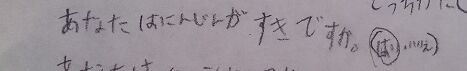 あなたはにんじんがすきですか。(はい・いいえ)